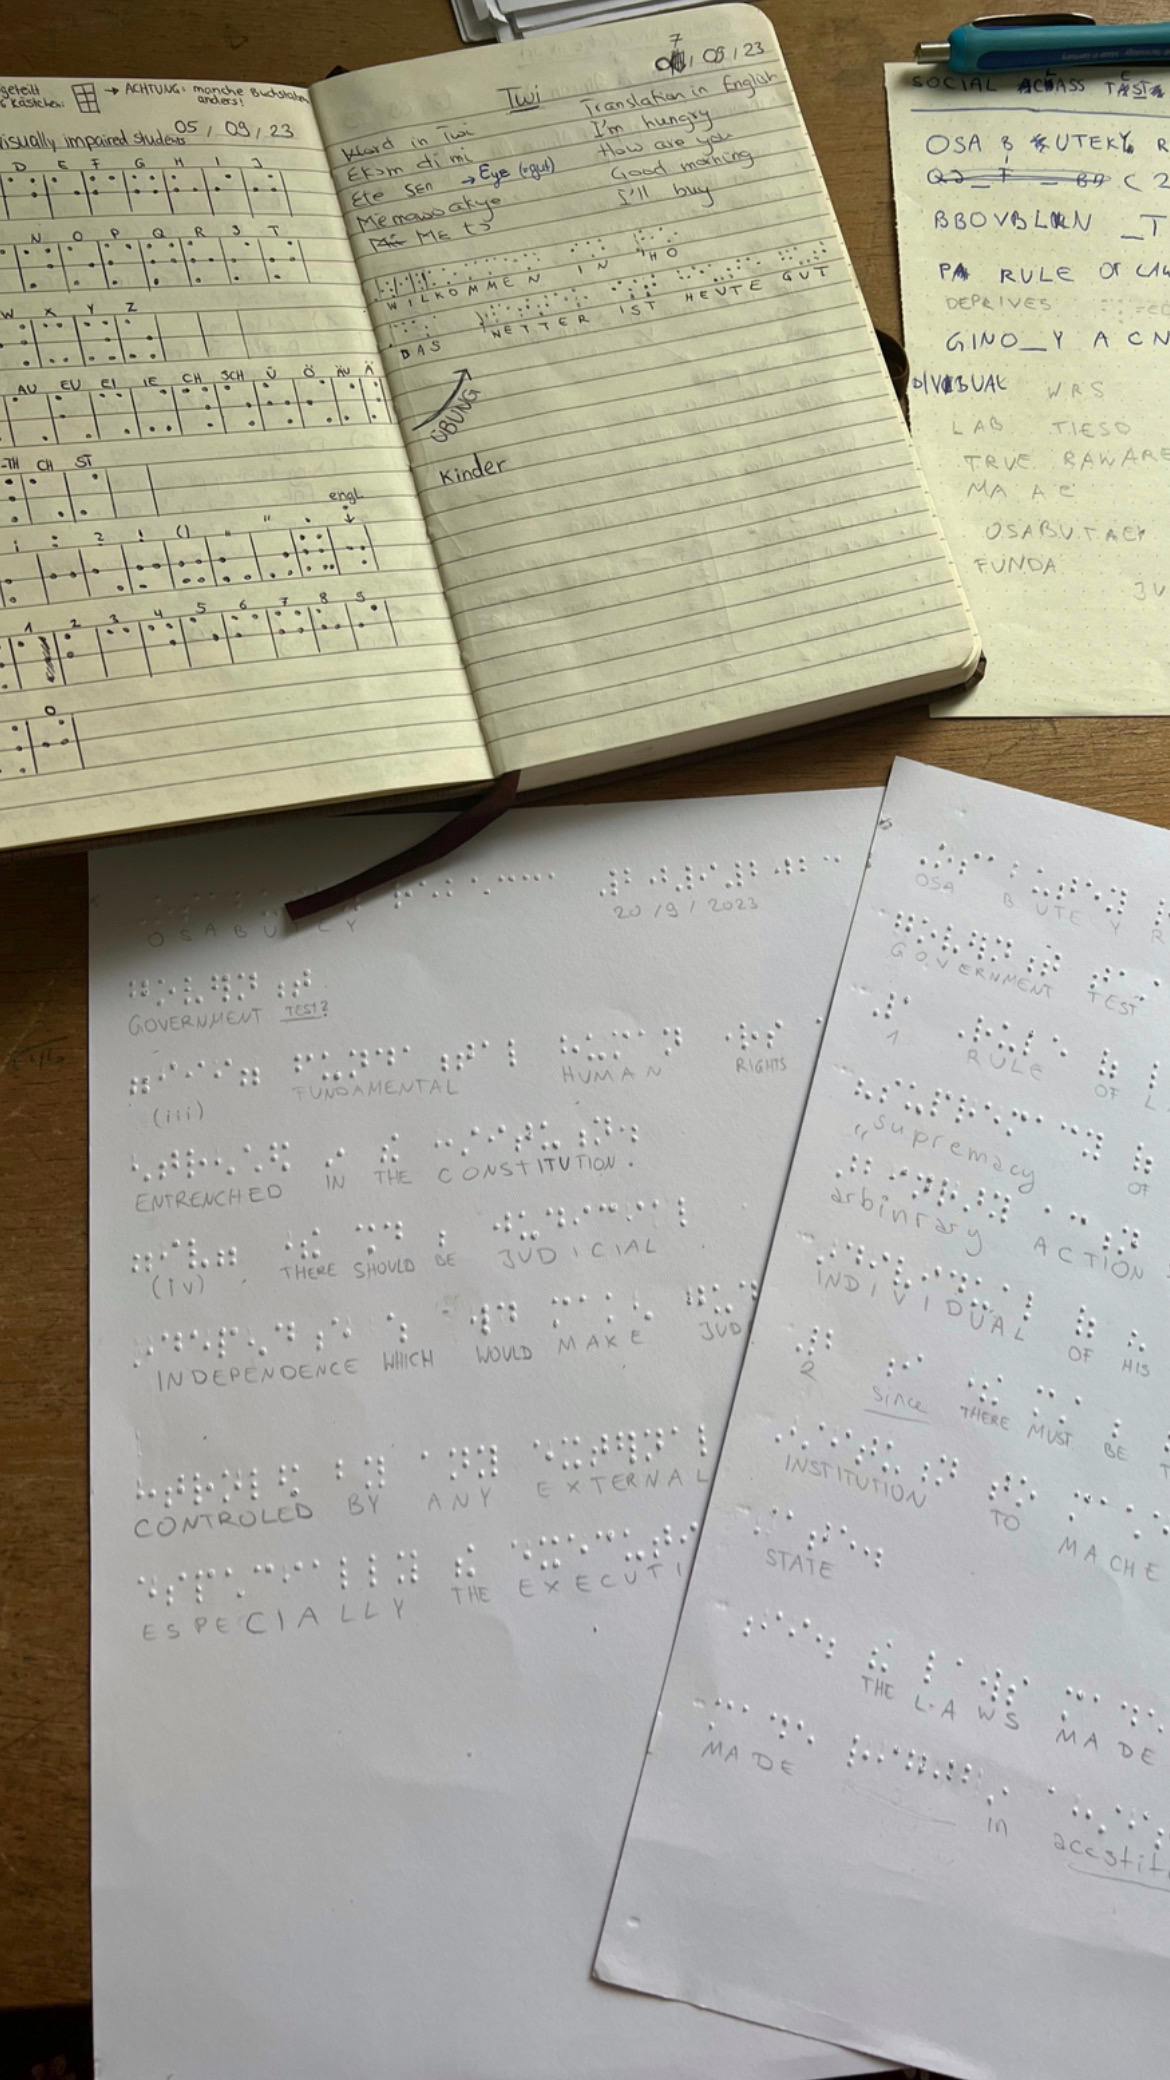 geteilt
6 Kästchen:
→ ACHTUNG: manche Buchstaben
anders!
visually impaired students 05 / 09 / 23
D E F G H I J
N O P Q R S T
W X Y Z
AU EU EI IE CH SCH Ü Ö ÄU Ä
-TH CH ST
engl.
; : ? ! () " " .
1 2 3 4 5 6 7 8 9
0
7
/ 09 / 23
Twi
Word in Twi
Translation in English
Ekɔm di mi
I'm hungry
Ete sen → Eye (=gut)
How are you
Memawoakye
Good morning
Me tɔ
I'll buy
WILKOMMEN IN HO
DAS NETTER IST HEUTE GUT
ÜBUNG
Kinder
SOCIAL CLASS TEST
OSA B UTEKY R
C 2
BBOVBLKN _T
PA RULE OF LAW
DEPRIVES
GINO__Y A CN
DIVIBUAL WRS
LAB TIESO
TRUE RAWARE
MA AC
OSABUTAEY
FUNDA
JU
OSABUTEY
20/9/2023
GOVERNMENT TEST?
(iii) FUNDAMENTAL HUMAN RIGHTS
ENTRENCHED IN THE CONSTITUTION.
(iv) THERE SHOULD BE JUDICIAL
INDEPENDENCE WHICH WOULD MAKE JUD
CONTROLED BY ANY EXTERNAL
ESPECIALLY THE EXECUTI
OSA B UTE Y R
GOVERNMENT TEST
1 RULE OF L
"supremacy OF
arbinrary ACTION
INDIVIDUAL OF HIS
2 since THERE MUST BE T
INSTITUTION TO MACHE
STATE
THE LAWS MADE
MADE in accstit